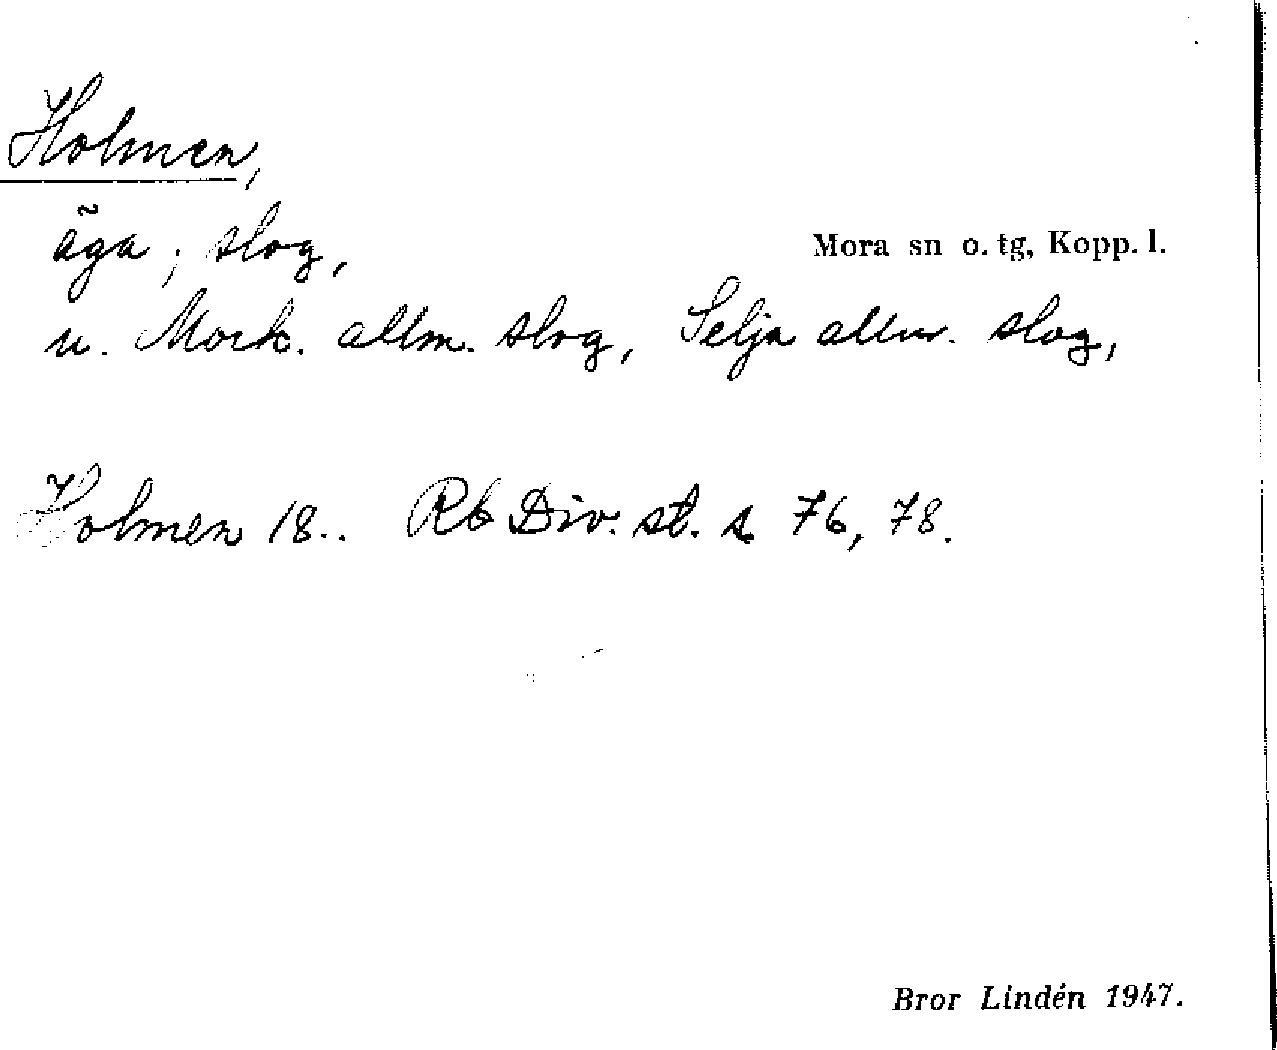 Holmen,
äga; slog,
Mora sn o. tg, Kopp. l.
u. Mork. allm. slog, Selja allm. slog,
Holmen 18.. Rb Div. st. s 76, 78.
Bror Lindén 1947.